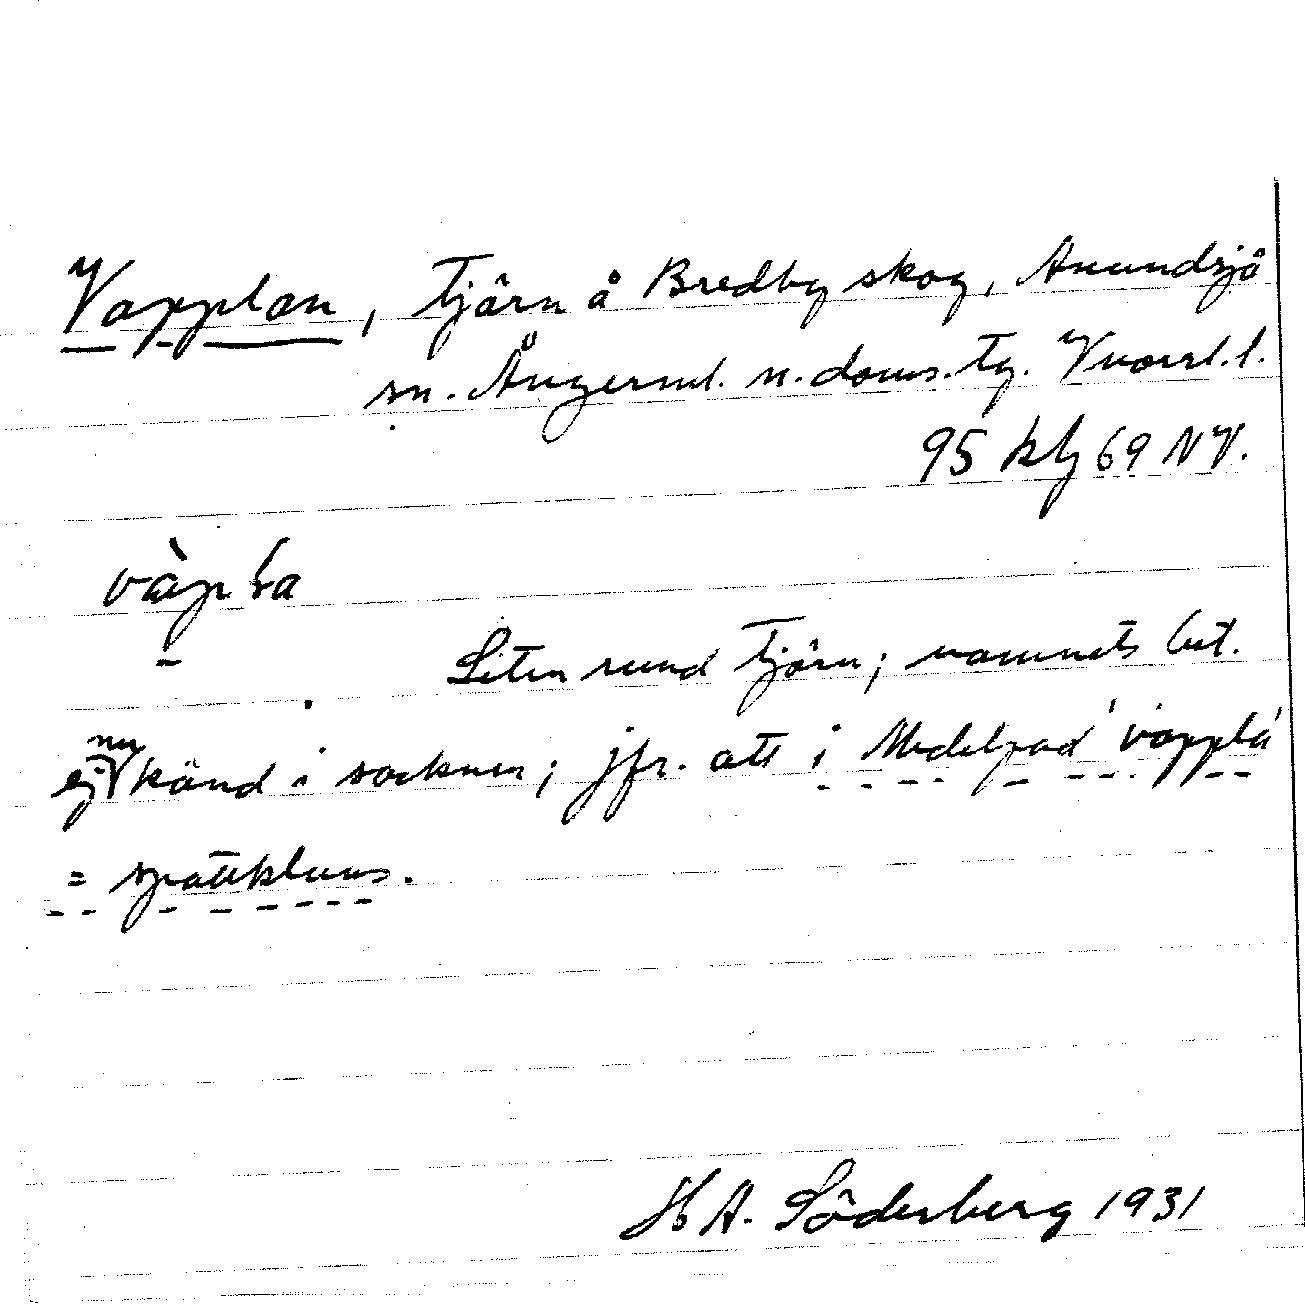 Vapplan, tjärn å Bredby skog, Anundsjö
sn. Ångerml. n. doms. tg. Vuorrl. l.
95 klg 69 NV.
vàpɭa
Liten rund tjärn; namnets bet.
ej nu känd i socknen; jfr. att i Medelpad 'vappla'
= spottklums.
H A. Söderberg 1931